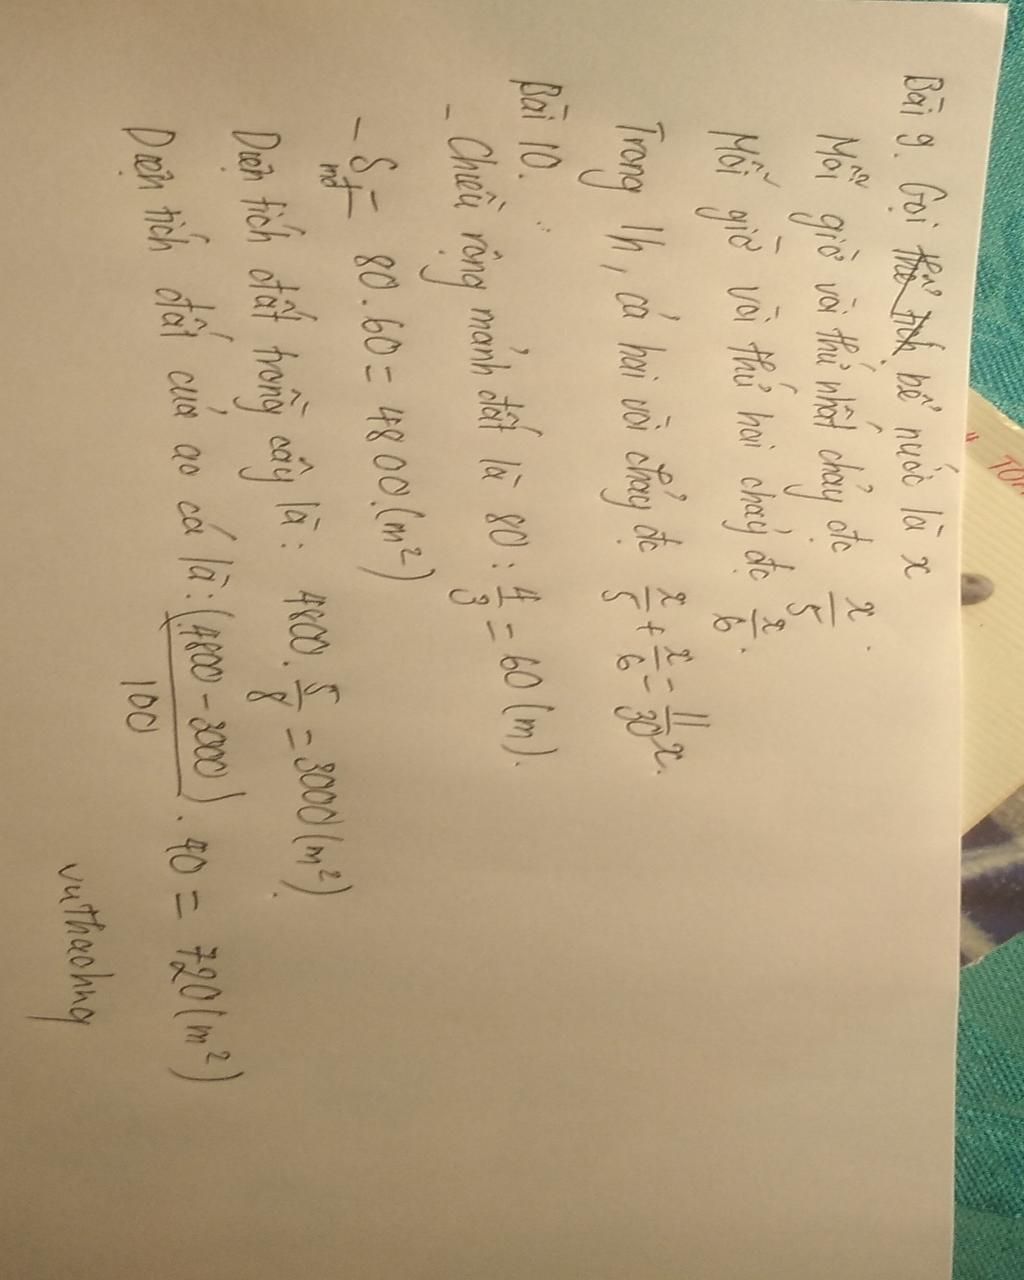 Bài 9. Gọi thể tích bể nước là x
Mỗi giờ vòi thứ nhất chảy đc x/5.
Mỗi giờ vòi thứ hai chảy đc x/6.
Trong 1h, cả hai vòi chảy đc x/5 + x/6 = 11/30 x.
Bài 10.
- Chiều rộng mảnh đất là 80 : 4/3 = 60 (m).
- S mđ = 80 . 60 = 4800 (m²)
Diện tích đất trồng cây là: 4800 . 5/8 = 3000 (m²).
Diện tích đất của ao cá là: (4800 - 3000)/100 . 40 = 720 (m²)
vuthaohng
TOÁ